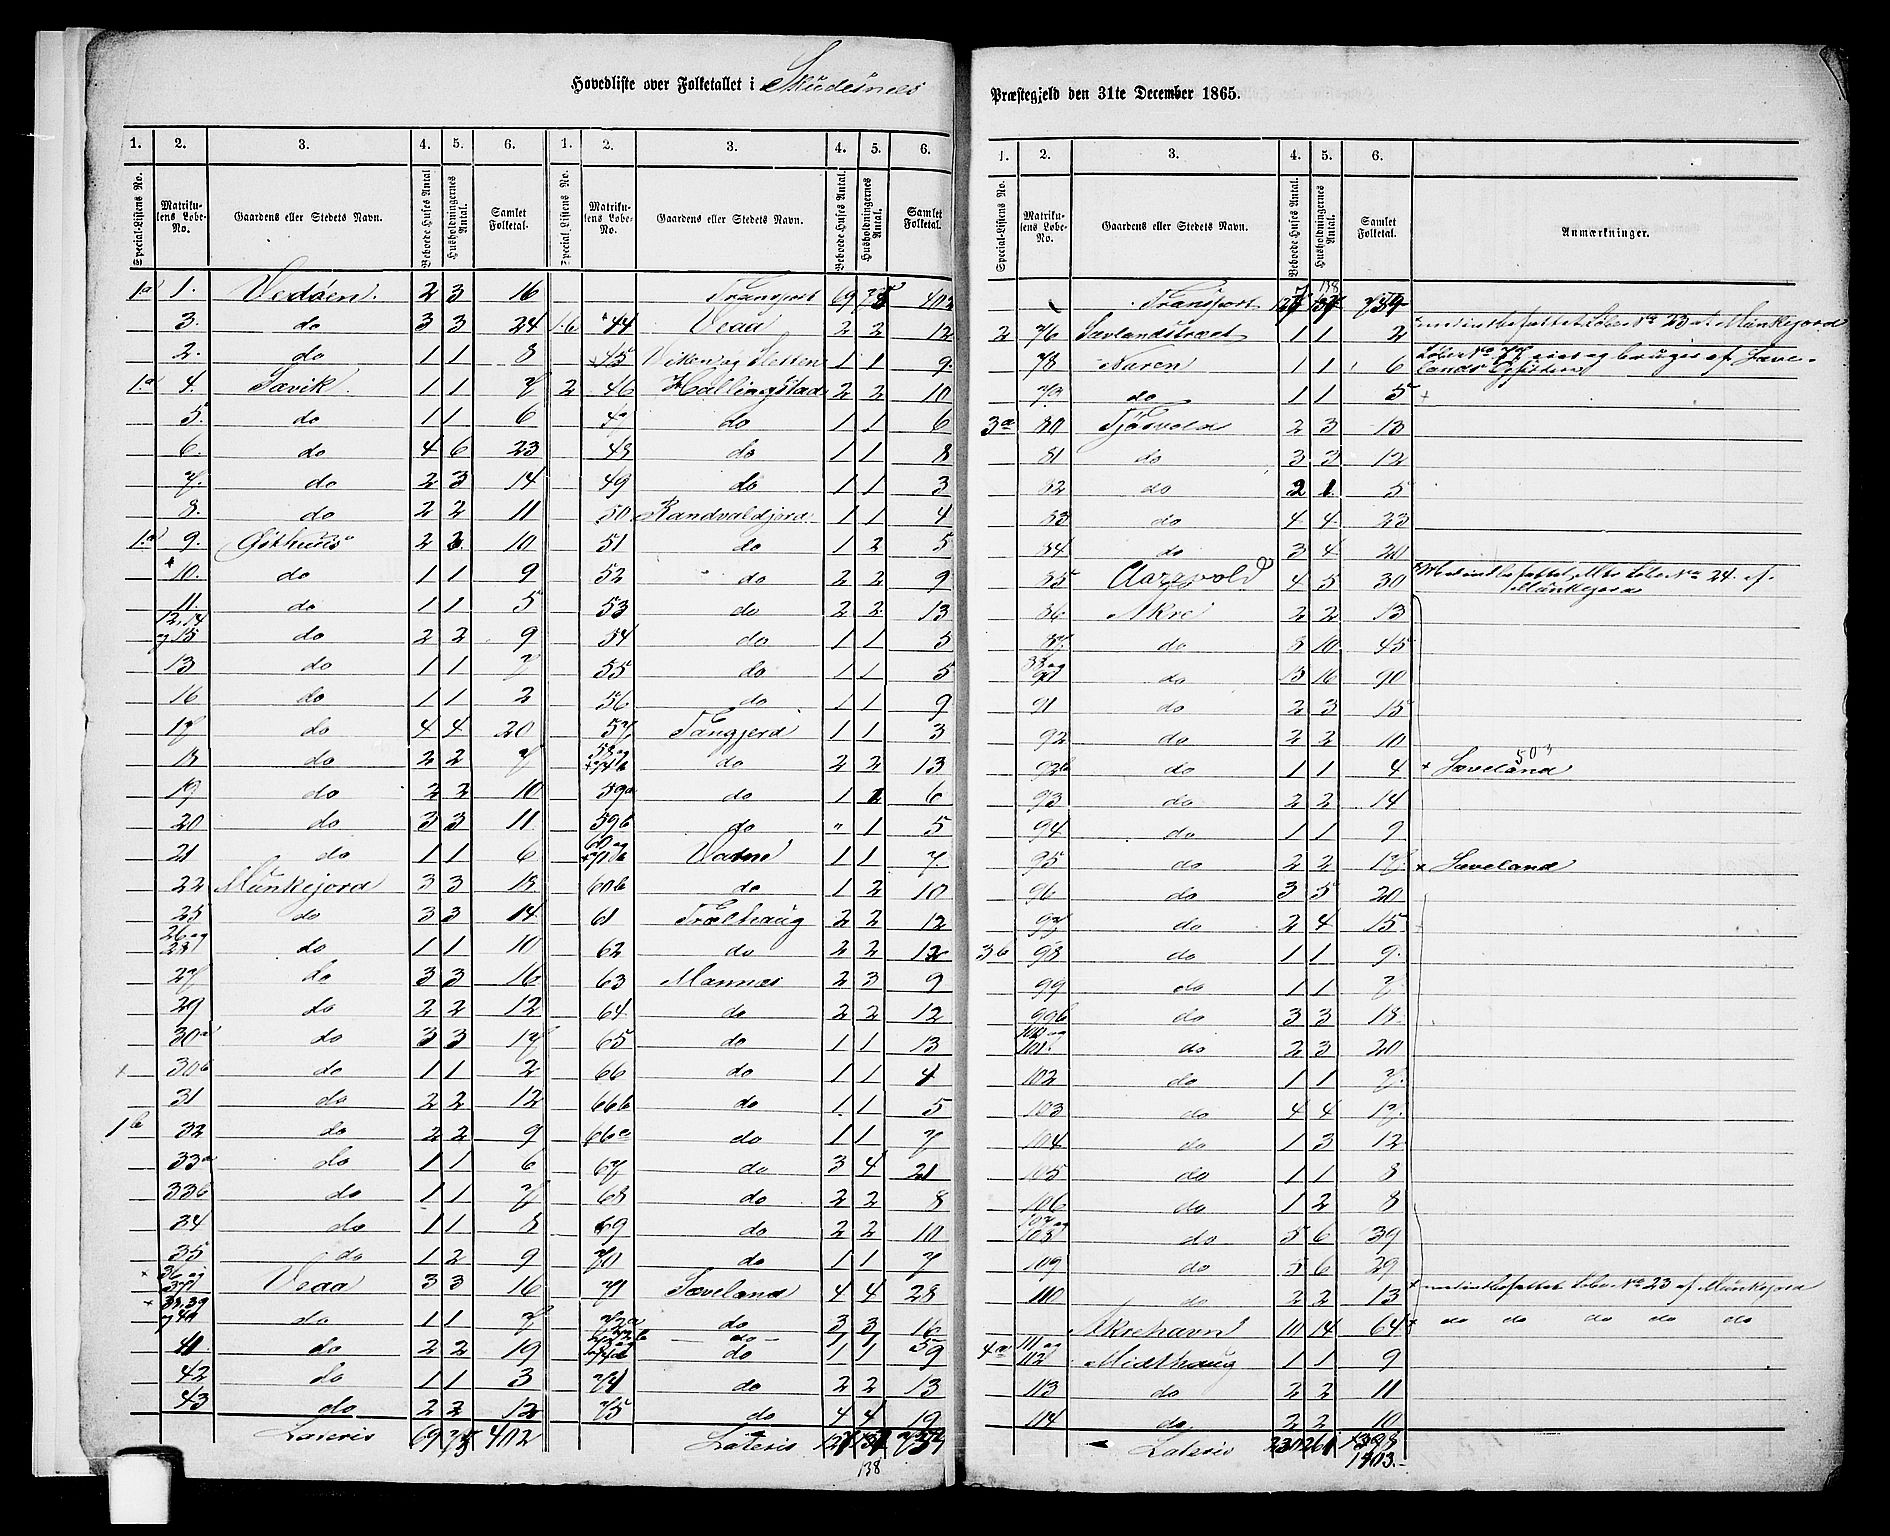 Hovedliste over Folketallet i Skudesnes
1. 2. 3. 4. 5. 6. 1. 2. 3. 4. 5. 6.
Special-Listens No. Matrikulens Løbe-No. Gaardens eller Stedets Navn. Beboede Huses Antal. Husholdningernes Antal. Samlet Folketal. Special-Listens No. Matrikulens Løbe-No. Gaardens eller Stedets Navn. Beboede Huses Antal. Husholdningernes Antal. Samlet Folketal.
1a 1. Vedøen. 2 3 16 Transport 69 402
3. do 3 3 24 1.b 44 Veaa 2 2 12
2. do 1 1 8 45 Viken og Sletten 1 1 9
1.a 4. Sævik. 1 1 7 2 46 Hallingstad 2 2 10
5. do 1 1 6 47 do 1 1 6
6. do 4 6 23 48 do 1 1 8
7. do 2 3 14 49 do 1 1 3
8. do 2 2 11 50 Randvaldjord 1 1 4
1.a 9. Østhuus 2 10 51 do 1 2 5
10. do 1 1 9 52 do 2 2 9
11. do 1 1 5 53 do 2 2 13
12.14 og 15 do 2 2 9 54 do 1 1 5
13 do 1 1 7 55 do 1 1 5
16 do 1 1 2 56 do 1 1 9
17 do 4 4 20 57 Tangjerd 1 1 3
18 do 2 2 7 do 2 2 13
19 do 2 2 10 59a do 1 6
20 do 3 3 11 59b do " 1 5
21 do 1 1 6 60 og Vatne 1 1 7
22 Munkejord 3 3 18 60b do 1 2 10
25 do 3 3 14 61 Trælhaug 2 2 12
26 og 28 do 1 1 10 62 do 2 2 12
27 do 3 3 16 63 Mannes 2 3 9
29 do 2 2 12 64. do 2 2 12
30a do 3 3 17 65 do 1 1 13
30b do 1 1 2 66 do 1 1 4
31 do 2 2 12 66b do 1 1 5
1b 32 do 2 2 9 66c do 1 1 7
33a do 1 1 6 67 do 3 4 21
33b do 1 1 7 68 do 2 2 8
34 do 1 1 8 69 do 2 2 10
35 do 1 2 9 70 do 1 1 7
36 og 37 Veaa 3 3 16 71 Sæveland 4 4 28
38.39 og 40 do 1 1 7 72a do 3 3 16
72b do 1 1 5
41 do 2 2 19 do 1 1 9
42 do 1 1 3 do 2 2 13
43 do 2 2 12 75 do 4 4 19
Lateris 69 402 Lateris
138
Præstegjeld den 31te December 1865.
1. 2. 3. 4. 5. 6.
Special-Listens No. Matrikulens Løbe-No. Gaardens eller Stedets Navn. Beboede Huses Antal. Husholdningernes Antal. Samlet Folketal. Anmærkninger.
138
Transport
2 76 Sævlandstræet 1 1 2 medindbefattet Løbe No 23 af Munkejord
78 Naren 1 1 6
79 do 1 1 5
3a 80 Tjøsvold 2 3 13
81 do 3 3 12
82 do 2 1 5
83 do 4 4 23
84 do 3 4 20
85 Aaresvold 4 5 30 Medindbefattet Løbe No 24 af Munkejord
86 Akre 2 2 13
87 do 8 10 45
88 og do 16 90
91 do 2 3 15
92 do 2 2 10
503
92b do 1 1 4 + Sæveland
93 do 2 2 14
94 do 1 1 9
95 do 2 2 17 + Sæveland
96 do 3 5 20
97 do 2 4 15
3b 98 do 1 1 9
99 do 1 1 7
99b do 3 3 18
100 og 101 do 2 3 20
102 do 1 1 7
103 do 4 4 17
104 do 1 3 12
105 do 1 1 8
106 do 1 2 8
107 og 108 do 5 6 39
109 do 5 6 29
110 do 2 2 13 + medindbefattet Løbe No 23 af Munkejord
Akrehavn 10 14 64 + do do do do do
4a 111 og 112 Midthaug 1 1 9
113 do 2 2 11
114 do 2 2 10
Lateris 230 261
1403.-